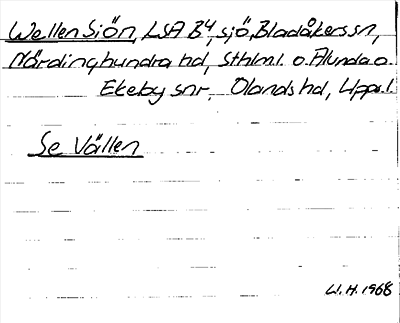 Wellen Siön, LSA B4, sjö, Bladåkers sn,
Närdinghundra hd, Sthlm.l. o. Alunda o.
Ekeby snr, Olands hd, Upps.l.
Se Vällen
W.H. 1968